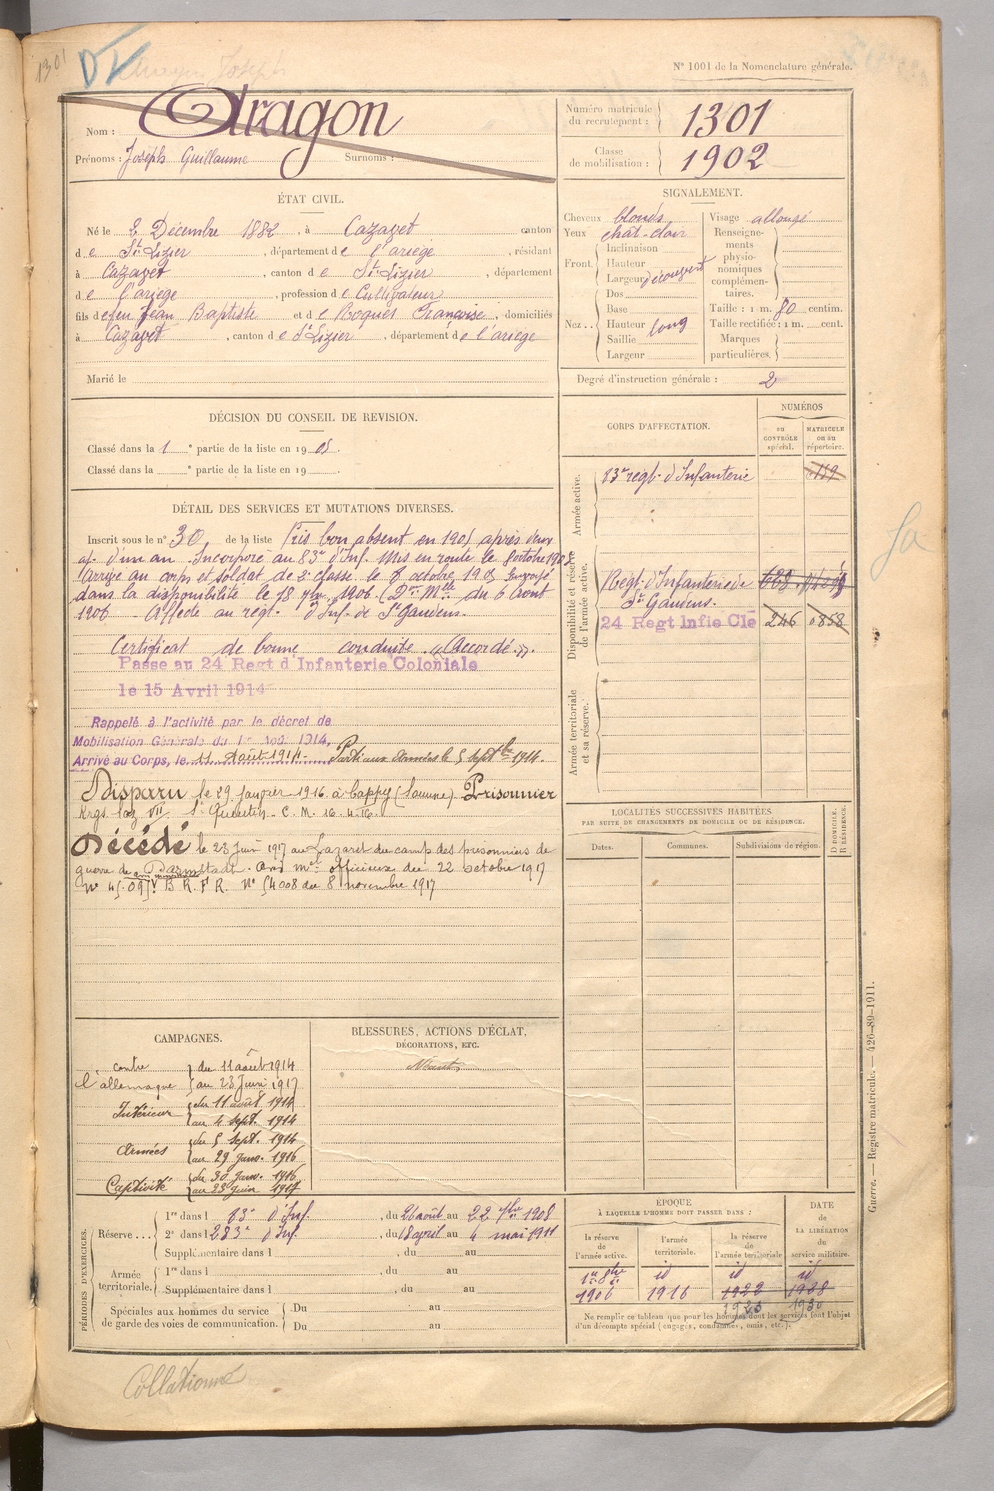 1301
DV
N° 1001 de la Nomenclature générale.
Nom : Aragon
Prénoms : Joseph Guillaume Surnoms :
Numéro matricule du recrutement : 1301
Classe de mobilisation : 1902
ÉTAT CIVIL.
Né le 2 Décembre 1882, à Cazavet canton
de St Lizier, département de l'ariège, résidant
à Cazavet, canton de St Lizier, département
de l'ariège, profession de Cultivateur
fils de feu Jean Baptiste et de Roques Françoise, domiciliés
à Cazavet, canton de St Lizier, département de l'ariège
Marié le
SIGNALEMENT.
Cheveux blonds
Yeux chat-clair
Front Inclinaison
Hauteur
Largeur découvert
Nez Dos
Base
Hauteur long
Saillie
Largeur
Visage allongé
Renseignements physionomiques complémentaires.
Taille : 1 m. 80 centim.
Taille rectifiée : 1 m. cent.
Marques particulières.
Degré d'instruction générale : 2
DÉCISION DU CONSEIL DE REVISION.
Classé dans la 1 e partie de la liste en 1905.
Classé dans la e partie de la liste en 19 .
DÉTAIL DES SERVICES ET MUTATIONS DIVERSES.
Inscrit sous le n° 30 de la liste Pris bon absent en 1905 après deux
aj. d'un an. Incorporé au 83e d'Inf. Mis en route le 8 octobre 1905
Arrivé au corps et soldat de 2e classe le 8 octobre 1905 Envoyé
dans la disponibilité le 18 7bre 1906. (Don Mlle du 6 Aout
1906 Affecté au régt. d'Inf. de St Gaudens.
Certificat de bonne conduite "Accordé".
Passé au 24 Regt d Infanterie Coloniale
le 15 Avril 1914
Rappelé à l'activité par le décret de
Mobilisation Générale du 1er Août 1914,
Arrivé au Corps, le 11 Août 1914. Parti aux Armées le 5 Septbre 1914.
Disparu le 29 janvier 1916 à Cappy (Somme). Prisonnier
Krgs. laz VII St Quentin - C. M. 16.4.16.
Décédé le 23 Juin 1917 au Lazaret du camp des prisonniers de
guerre de Darmstadt. Avis mel officieux du 22 octobre 1917
N° 45.097 B. R. F R. N° 54008 du 8 novembre 1917
CORPS D'AFFECTATION.
NUMÉROS
au CONTRÔLE spécial.
MATRICULE ou au répertoire.
Armée active.
83e régt. d'Infanterie
Disponibilité et réserve de l'armée active.
Régt. d'Infanterie de St Gaudens.
24 Regt Infie Cle 246 0858
Armée territoriale et sa réserve.
LOCALITÉS SUCCESSIVES HABITÉES
PAR SUITE DE CHANGEMENTS DE DOMICILE OU DE RÉSIDENCE.
Dates. Communes. Subdivisions de région. D. DOMICILE. R. RÉSIDENCE.
CAMPAGNES.
contre l'allemagne du 11 août 1914
au 23 Juin 1917
Intérieur du 11 août 1914
au 4 sept. 1914
Armées du 5 sept. 1914
au 29 Janv. 1916
Captivité du 30 Janv. 1916
au 23 Juin 1917
BLESSURES, ACTIONS D'ÉCLAT,
DÉCORATIONS, ETC.
Néant
PÉRIODES D'EXERCICES.
Réserve... 1re dans l 83e d'Inf., du 26 août au 22 7bre 1908
2e dans l 283e d'Inf., du 18 avril au 4 mai 1911
Supplémentaire dans l , du au
Armée territoriale. 1re dans l du au
Supplémentaire dans l du au
Spéciales aux hommes du service de garde des voies de communication. Du au
Du au
ÉPOQUE
À LAQUELLE L'HOMME DOIT PASSER DANS :
la réserve de l'armée active. l'armée territoriale. la réserve de l'armée territoriale
DATE de la LIBÉRATION du service militaire.
1er 8bre 1906 id 1916 id 1922 id 1928
1923 1930
Ne remplir ce tableau que pour les hommes dont les services font l'objet
d'un décompte spécial (engagés, condamnés, omis, etc.).
Guerre. — Registre matricule. — 426-89-1911.
Collationné